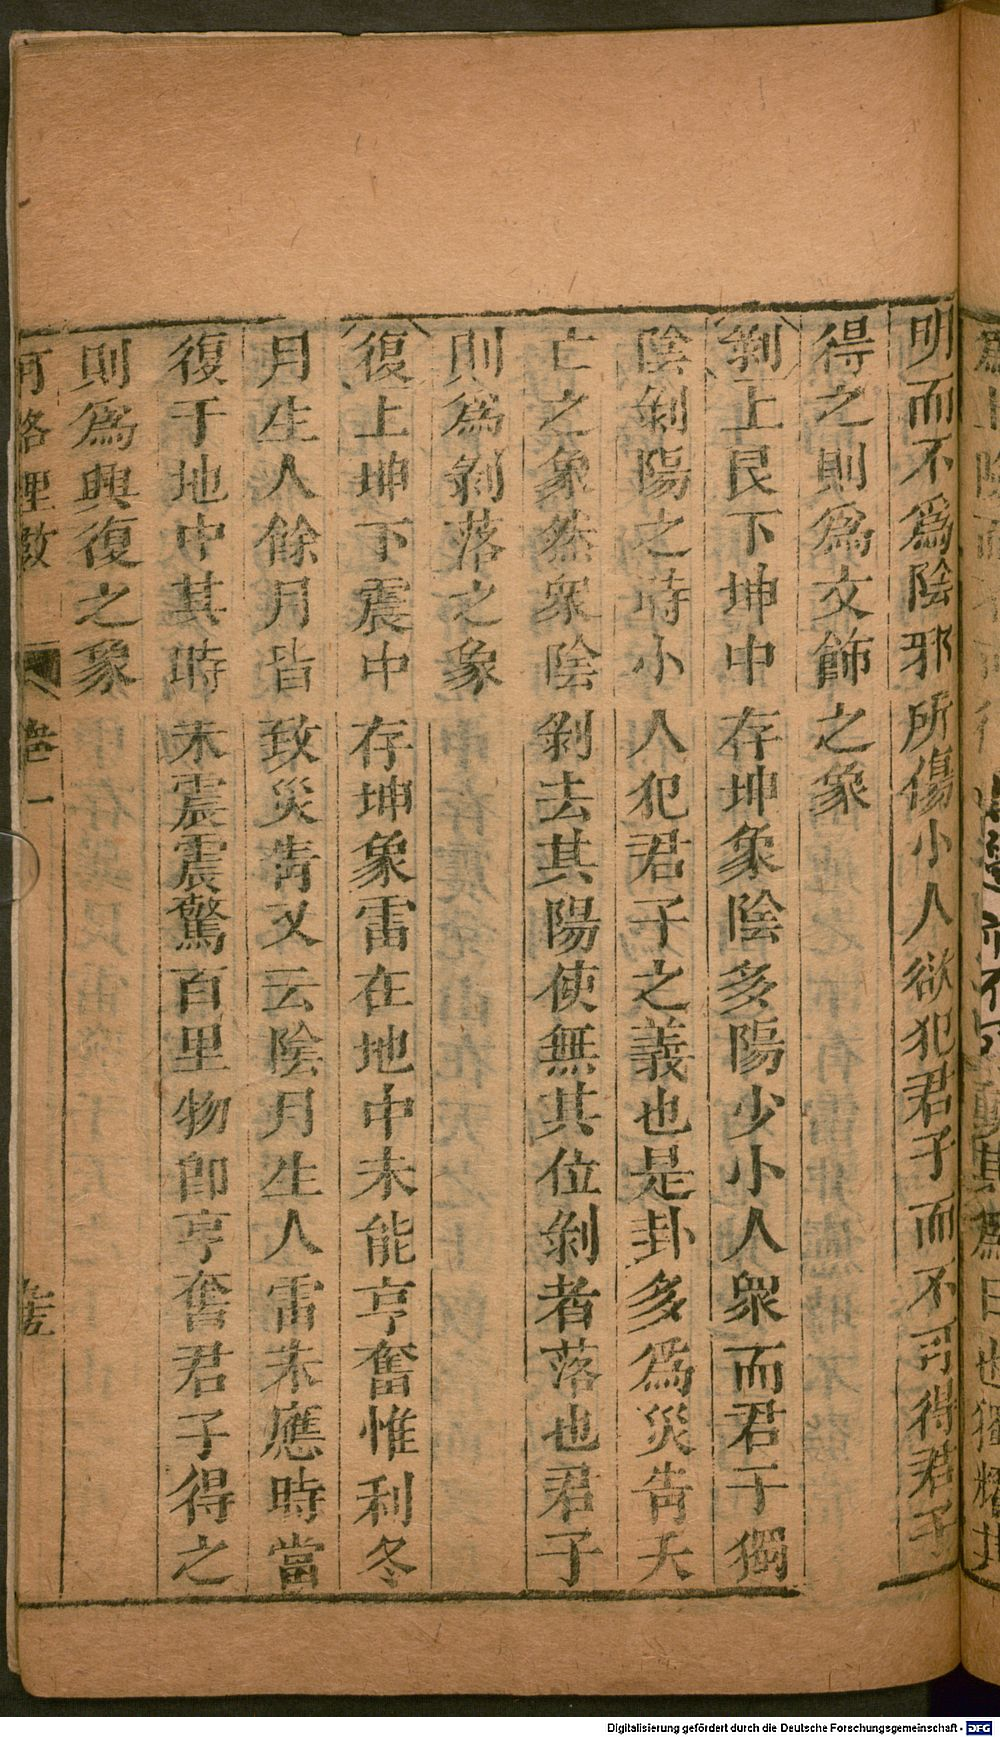 明而不爲陰邪所傷小人欲犯君子而不可得君子
得之則爲文飾之象
剝上艮下坤中存坤象陰多陽少小人衆而君子獨
陰剝陽之時小人犯君子之義也是卦多爲災眚夭
亡之象然衆陰剝去其陽使無其位剝者落也君子
則爲剝落之象
復上坤下震中存坤象雷在地中未能亨奮惟利冬
月生人餘月皆致災眚又云陰月生人雷未應時當
復于地中其時未震震驚百里物卽亨奮君子得之
則爲興復之象
河洛理數 卷一
Digitalisierung gefördert durch die Deutsche Forschungsgemeinschaft - DFG